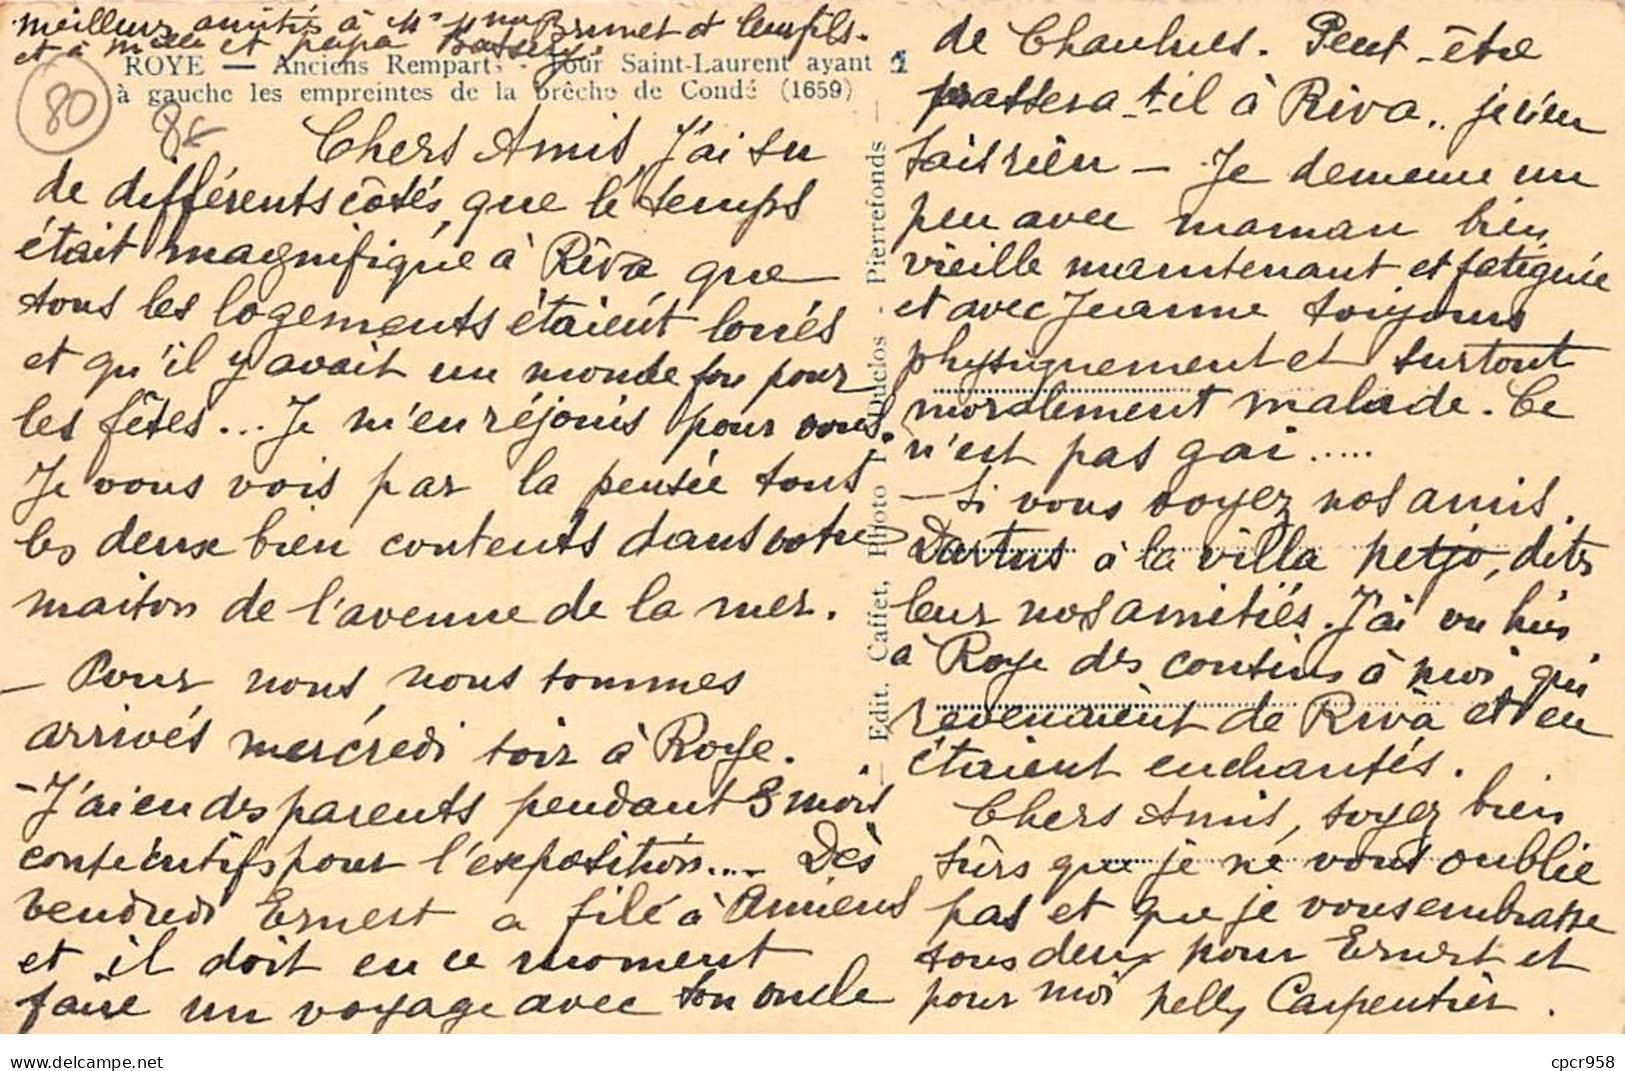 meilleurs amitiés à Mr Mme Brunet et leur fils.
et à Melle et papa
ROYE — Anciens Remparts - Tour Saint-Laurent ayant
à gauche les empreintes de la brêche de Condé (1659)
1
80
8€
Chers Amis, J'ai su
de différents côtés, que le temps
était magnifique à Riva que
tous les logements étaient loués
et qu'il y avait un monde fou pour
les fêtes... Je m'en réjouis pour vous.
Je vous vois par la pensée tous
les deux bien contents dans votre
maison de l'avenue de la mer.
— Pour nous, nous sommes
arrivés mercredi soir à Roye.
— J'ai eu des parents pendant 3 mois
consécutifs pour l'exposition.... Dès
vendredi Ernest a filé à Amiens
et il doit en ce moment
faire un voyage avec son oncle
Edit. Caffet, Photo P. Duclos - Pierrefonds —
de Chaulnes. Peut-être
passera-t-il à Riva.. je n'en
sais rien — Je demeure un
peu avec maman bien
vieille maintenant et fatiguée
et avec Jeanne toujours
physiquement et surtout
moralement malade. Ce
n'est pas gai.....
— Si vous voyez nos amis
Dartus à la villa petjo, dites
leur nos amitiés. J'ai vu hier
à Roye des cousins à moi qui
revenaient de Riva et en
étaient enchantés.
Chers Amis, soyez bien
sûrs que je ne vous oublie
pas et que je vous embrasse
tous deux pour Ernest et
pour moi Nelly Carpentier.
cpcr958